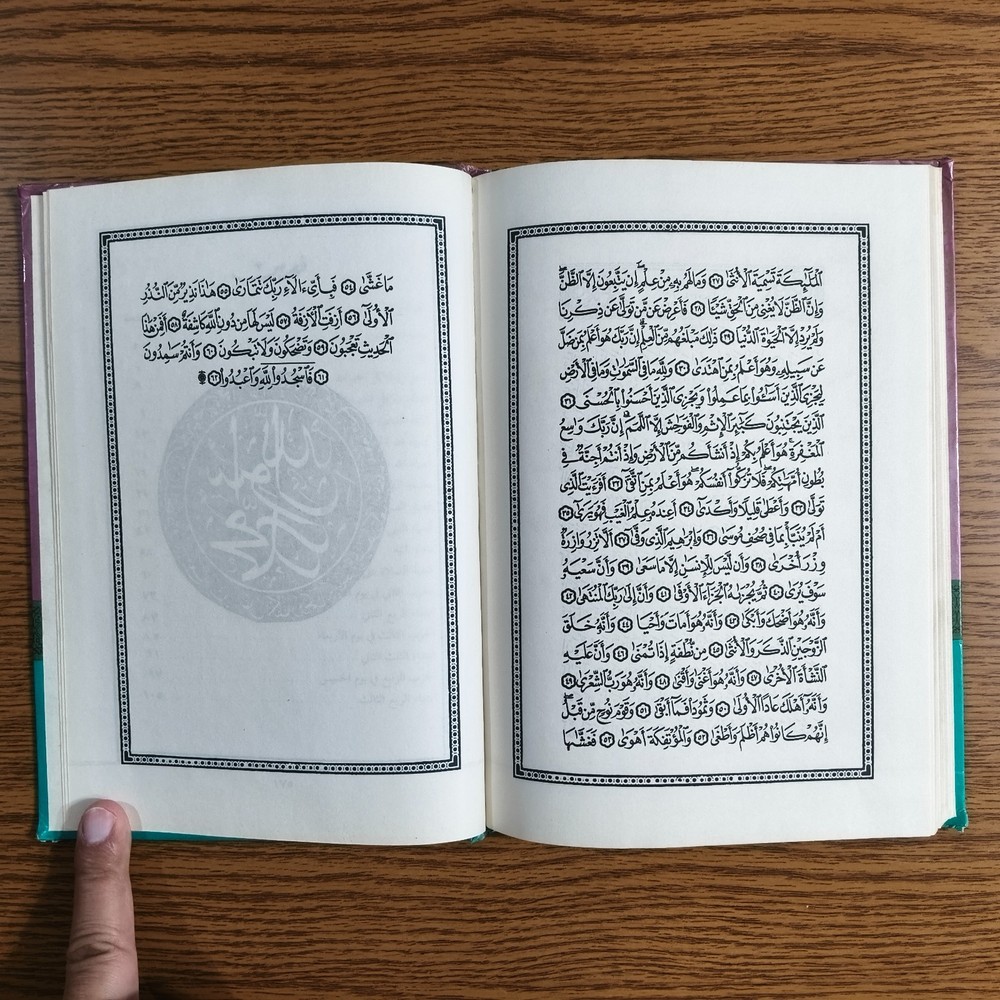 ٱلْمَلَٰٓئِكَةَ تَسْمِيَةَ ٱلْأُنثَىٰ ٢٧ وَمَا لَهُم بِهِۦ مِنْ عِلْمٍ إِن يَتَّبِعُونَ إِلَّا ٱلظَّنَّ
وَإِنَّ ٱلظَّنَّ لَا يُغْنِى مِنَ ٱلْحَقِّ شَيْـًٔا ٢٨ فَأَعْرِضْ عَن مَّن تَوَلَّىٰ عَن ذِكْرِنَا
وَلَمْ يُرِدْ إِلَّا ٱلْحَيَوٰةَ ٱلدُّنْيَا ٢٩ ذَٰلِكَ مَبْلَغُهُم مِّنَ ٱلْعِلْمِ إِنَّ رَبَّكَ هُوَ أَعْلَمُ بِمَن ضَلَّ
عَن سَبِيلِهِۦ وَهُوَ أَعْلَمُ بِمَنِ ٱهْتَدَىٰ ٣٠ وَلِلَّهِ مَا فِى ٱلسَّمَٰوَٰتِ وَمَا فِى ٱلْأَرْضِ
لِيَجْزِىَ ٱلَّذِينَ أَسَٰٓـُٔوا۟ بِمَا عَمِلُوا۟ وَيَجْزِىَ ٱلَّذِينَ أَحْسَنُوا۟ بِٱلْحُسْنَى ٣١
ٱلَّذِينَ يَجْتَنِبُونَ كَبَٰٓئِرَ ٱلْإِثْمِ وَٱلْفَوَٰحِشَ إِلَّا ٱللَّمَمَ إِنَّ رَبَّكَ وَٰسِعُ
ٱلْمَغْفِرَةِ هُوَ أَعْلَمُ بِكُمْ إِذْ أَنشَأَكُم مِّنَ ٱلْأَرْضِ وَإِذْ أَنتُمْ أَجِنَّةٌ فِى
بُطُونِ أُمَّهَٰتِكُمْ فَلَا تُزَكُّوٓا۟ أَنفُسَكُمْ هُوَ أَعْلَمُ بِمَنِ ٱتَّقَىٰٓ ٣٢ أَفَرَءَيْتَ ٱلَّذِى
تَوَلَّىٰ ٣٣ وَأَعْطَىٰ قَلِيلًا وَأَكْدَىٰٓ ٣٤ أَعِندَهُۥ عِلْمُ ٱلْغَيْبِ فَهُوَ يَرَىٰٓ ٣٥
أَمْ لَمْ يُنَبَّأْ بِمَا فِى صُحُفِ مُوسَىٰ ٣٦ وَإِبْرَٰهِيمَ ٱلَّذِى وَفَّىٰٓ ٣٧ أَلَّا تَزِرُ وَازِرَةٌ
وِزْرَ أُخْرَىٰ ٣٨ وَأَن لَّيْسَ لِلْإِنسَٰنِ إِلَّا مَا سَعَىٰ ٣٩ وَأَنَّ سَعْيَهُۥ
سَوْفَ يُرَىٰ ٤٠ ثُمَّ يُجْزَىٰهُ ٱلْجَزَآءَ ٱلْأَوْفَىٰ ٤١ وَأَنَّ إِلَىٰ رَبِّكَ ٱلْمُنتَهَىٰ ٤٢
وَأَنَّهُۥ هُوَ أَضْحَكَ وَأَبْكَىٰ ٤٣ وَأَنَّهُۥ هُوَ أَمَاتَ وَأَحْيَا ٤٤ وَأَنَّهُۥ خَلَقَ
ٱلزَّوْجَيْنِ ٱلذَّكَرَ وَٱلْأُنثَىٰ ٤٥ مِن نُّطْفَةٍ إِذَا تُمْنَىٰ ٤٦ وَأَنَّ عَلَيْهِ
ٱلنَّشْأَةَ ٱلْأُخْرَىٰ ٤٧ وَأَنَّهُۥ هُوَ أَغْنَىٰ وَأَقْنَىٰ ٤٨ وَأَنَّهُۥ هُوَ رَبُّ ٱلشِّعْرَىٰ ٤٩
وَأَنَّهُۥٓ أَهْلَكَ عَادًا ٱلْأُولَىٰ ٥٠ وَثَمُودَا۟ فَمَآ أَبْقَىٰ ٥١ وَقَوْمَ نُوحٍ مِّن قَبْلُ
إِنَّهُمْ كَانُوا۟ هُمْ أَظْلَمَ وَأَطْغَىٰ ٥٢ وَٱلْمُؤْتَفِكَةَ أَهْوَىٰ ٥٣ فَغَشَّىٰهَا
مَا غَشَّىٰ ٥٤ فَبِأَىِّ ءَالَآءِ رَبِّكَ تَتَمَارَىٰ ٥٥ هَٰذَا نَذِيرٌ مِّنَ ٱلنُّذُرِ
ٱلْأُولَىٰٓ ٥٦ أَزِفَتِ ٱلْءَازِفَةُ ٥٧ لَيْسَ لَهَا مِن دُونِ ٱللَّهِ كَاشِفَةٌ ٥٨ أَفَمِنْ هَٰذَا
ٱلْحَدِيثِ تَعْجَبُونَ ٥٩ وَتَضْحَكُونَ وَلَا تَبْكُونَ ٦٠ وَأَنتُمْ سَٰمِدُونَ
٦١ فَٱسْجُدُوا۟ لِلَّهِ وَٱعْبُدُوا۟ ٦٢